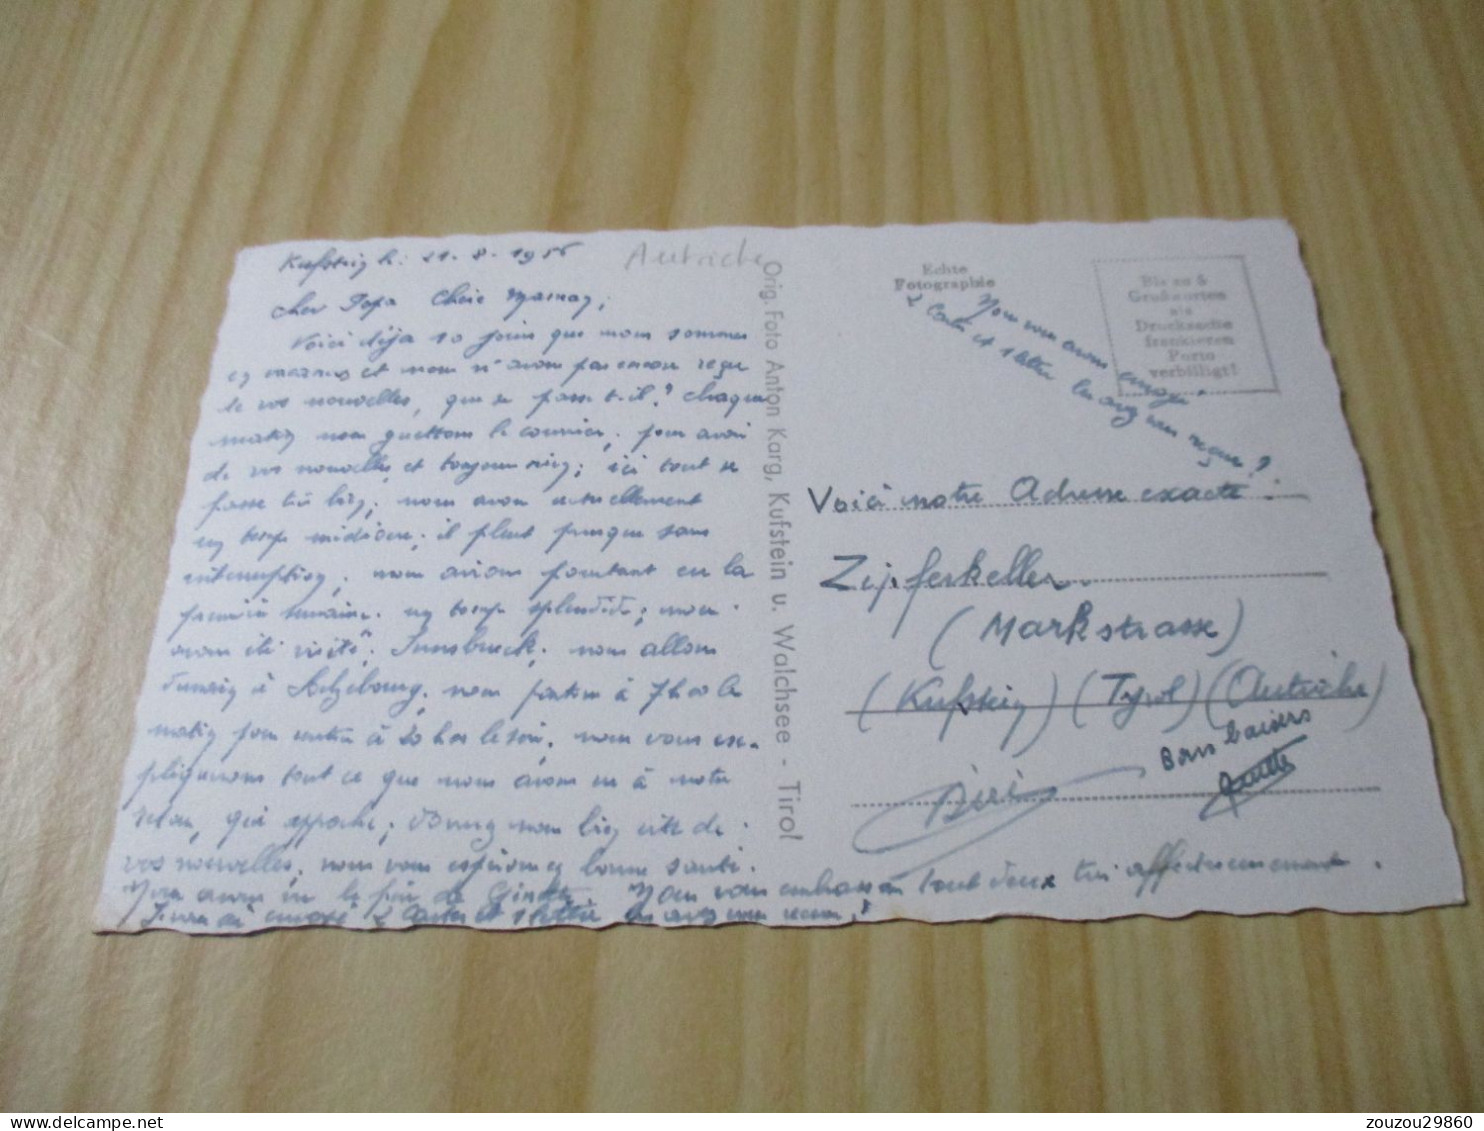 Kufstein le: 21-8-1956
Autriche
Cher Papa Chère Maman,
Voici déja 10 jours que nous sommes
en vacances et nous n'avons pas encore reçu
de vos nouvelles, que se passe-t-il? chaque
matin nous guettons le courrier, pour avoir
de vos nouvelles et toujours rien; ici tout se
passe très bien; nous avons actuellement
un temps médiocre; il pleut presque sans
interruption, nous avions pourtant eu la
première semaine un temps splendide; nous
avons été visité Innsbruck, nous allons
demain à Salzbourg, nous partons à 7h00 le
matin pour rentrer à 20 h00 le soir, nous vous ex-
pliquerons tout ce que nous avons vu à notre
retour, qui approche; donnez nous bien vite de
vos nouvelles, nous vous espérons en bonne santé.
Nous avons vu le de Ginette. Nous vous embrassons tout deux très affectueusement.
envoyé 2 Cartes et 1 lettre les avez vous reçues?
Orig. Foto Anton Karg, Kufstein u. Walchsee - Tirol
Echte
Fotographie
Bis zu 5
Grußworten
als
Drucksache
frankieren
Porto
verbilligt!
Nous vous avons envoyé
2 Cartes et 1 lettre les avez vous reçues?
Voici notre Adresse exacte:
Zipferkeller.
(Markstrasse)
(Kufstein) (Tyrol) (Autriche)
Bons baisers
Ginette
zouzou29860